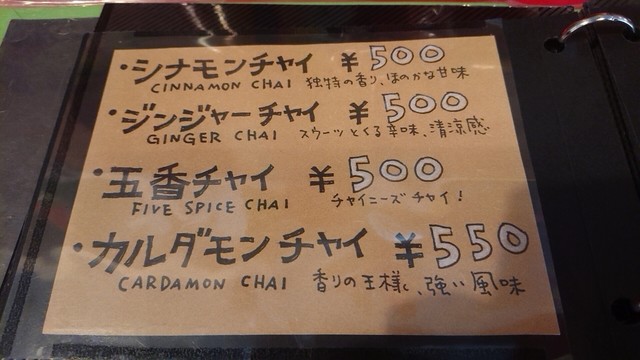 ・シナモンチャイ ¥500
CINNAMON CHAI 独特の香り、ほのかな甘味
・ジンジャーチャイ ¥500
GINGER CHAI スウーッとくる辛味、清涼感
・五香チャイ ¥500
FIVE SPICE CHAI チャイニーズチャイ!
・カルダモンチャイ ¥550
CARDAMON CHAI 香りの王様、強い風味